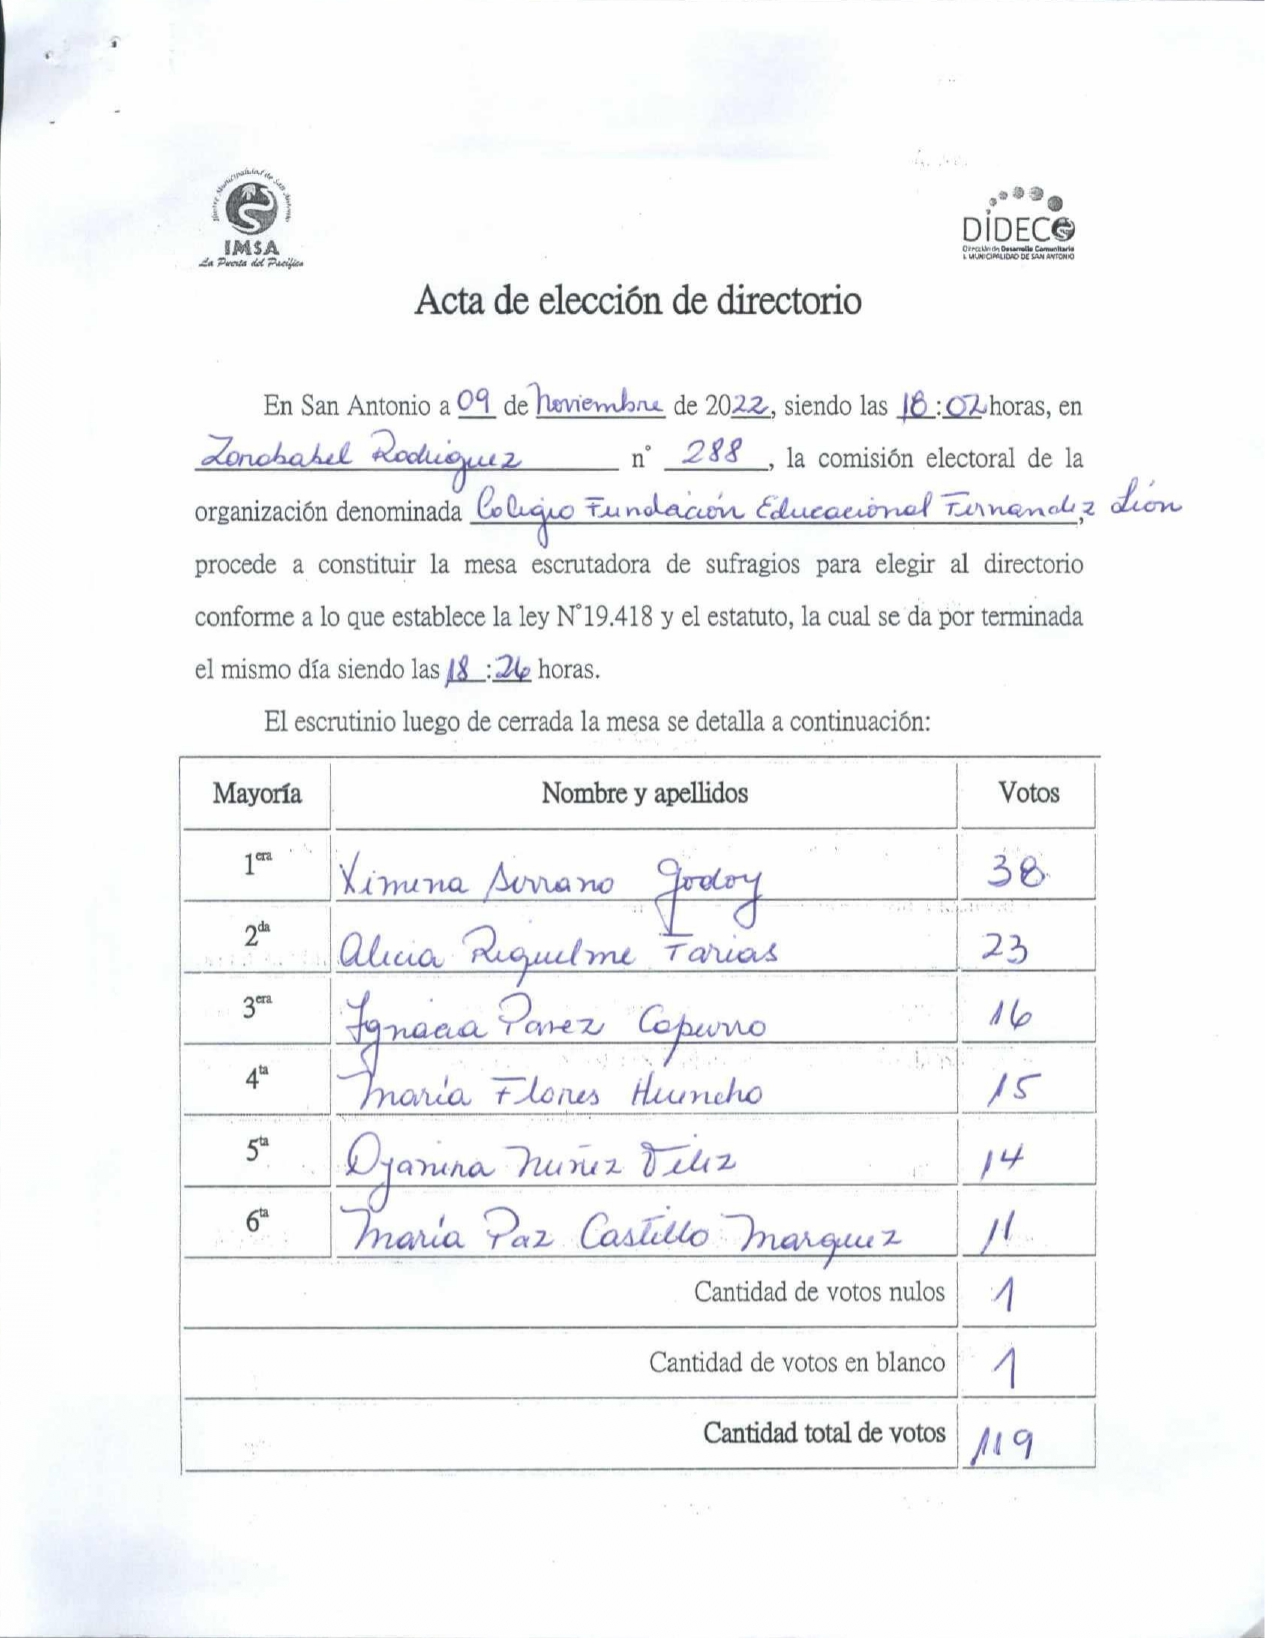 Ilustre Municipalidad de San Antonio
IMSA
La Puerta del Pacífico
DIDECO
Dirección de Desarrollo Comunitario
I. MUNICIPALIDAD DE SAN ANTONIO
Acta de elección de directorio
En San Antonio a 09 de Noviembre de 2022, siendo las 18:02 horas, en
Zorobabel Rodriguez n° 288, la comisión electoral de la
organización denominada Colegio Fundación Educacional Fernandez León,
procede a constituir la mesa escrutadora de sufragios para elegir al directorio
conforme a lo que establece la ley N°19.418 y el estatuto, la cual se da por terminada
el mismo día siendo las 18:26 horas.
El escrutinio luego de cerrada la mesa se detalla a continuación:
Mayoría Nombre y apellidos Votos
1era Ximena Serrano Godoy 38
2da Alicia Riquelme Farias 23
3era Ignacia Parez Capurro 16
4ta María Flores Huencho 15
5ta Dyanina Nuñez Veliz 14
6ta María Paz Castillo Marquez 11
Cantidad de votos nulos 1
Cantidad de votos en blanco 1
Cantidad total de votos 119